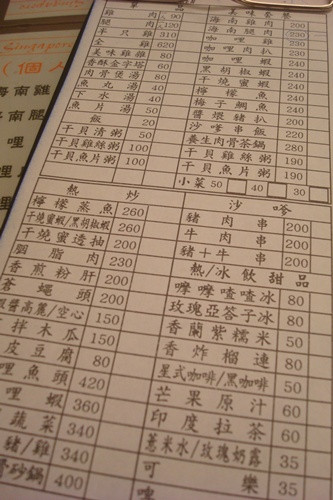 Singapore
(個人
海南雞
海南腿
單 品
雞肉 90
腿肉 120
半只雞 310
全雞 620
美味雞雜 80
香酥金字塔 60
肉骨煲湯 80
魚丸湯 40
下水湯 40
魚片湯 50
飯 20
干貝清粥 50
干貝雞絲粥 100
干貝魚片粥 100
美味套餐
海南雞肉 200
海南腿肉 230
咖哩雞 200
咖哩肉扒 230
咖哩蝦 240
黑胡椒蝦 240
干燒蜜蝦 240
檸檬魚 240
梅子鯛魚 240
醬堀豬扒 200
沙嗲串飯 220
養生肉骨茶鍋 280
干貝雞絲粥 190
干貝魚片粥 190
小菜 50 40 30
熱 炒
檸檬蒸魚 260
干燒蜜蝦/黑胡椒蝦 260
干燒蜜透抽 200
胭脂肉 230
香煎粉肝 200
蒼蠅頭 200
蝦醬高麗/空心 150
拌木瓜 150
皮豆腐 80
哩魚頭 420
哩蝦 360
蔬菜 340
豬/雞 340
骨砂鍋 400
沙 嗲
豬肉串 200
牛肉串 200
豬+牛串 200
熱/冰飲甜品
嚤嚤喳喳冰 80
玫瑰亞答子冰 80
香蘭紫糯米 50
香炸榴連 80
星式咖啡/黑咖啡 50
芒果原汁 60
印度拉茶 60
薏米水/玫瑰奶露 35
可樂 35